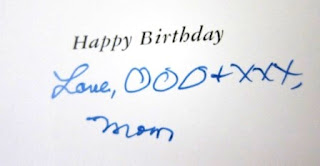 Happy Birthday
Love, OOO+XXX,
Mom